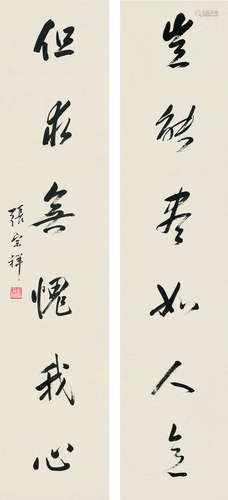 岂能尽如人意
但求無愧我心
張宗祥